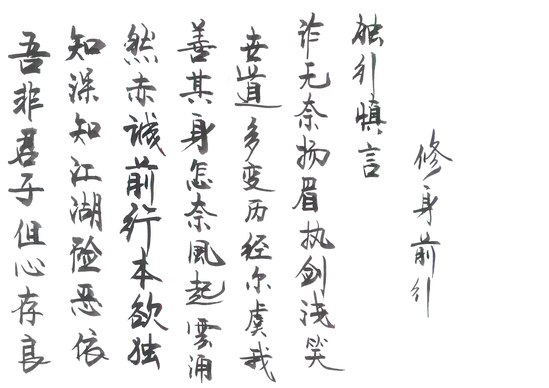 吾非君子但心存良
知深知江湖险恶依
然赤诚前行本欲独
善其身怎奈風起雲涌
世道多变历经尔虞我
诈无奈扬眉执剑浅笑
独行慎言
修身前行